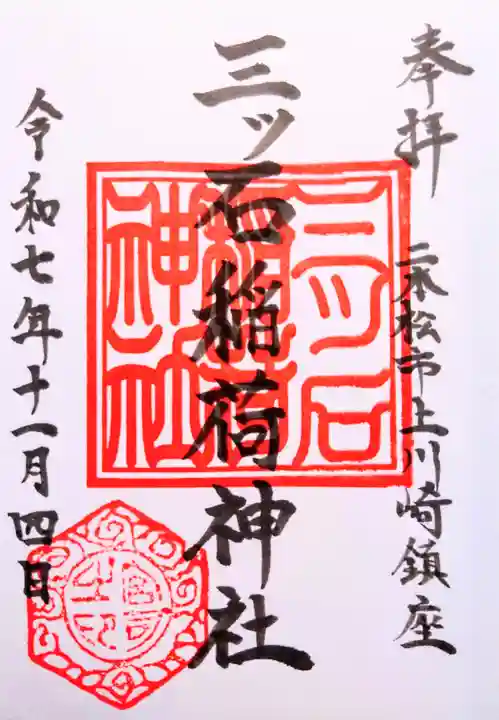 奉拝
二本松市上川崎鎮座
三ッ石稲荷神社
三ツ石
稲荷
神社
令和七年十一月四日
宮司之印